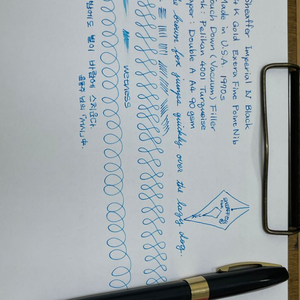 Sheaffer Imperial IV Black
14K Gold Extra Fine Point Nib
Made in U.S.A 1990s
Touch Down (Vacuum) Filler
Ink: Pelikan 4001 Turquoise
Paper : Double A A4
brown fox jumps quickly over the lazy dog.
WETNESS
밤에도 별이 바람에 스치운다.